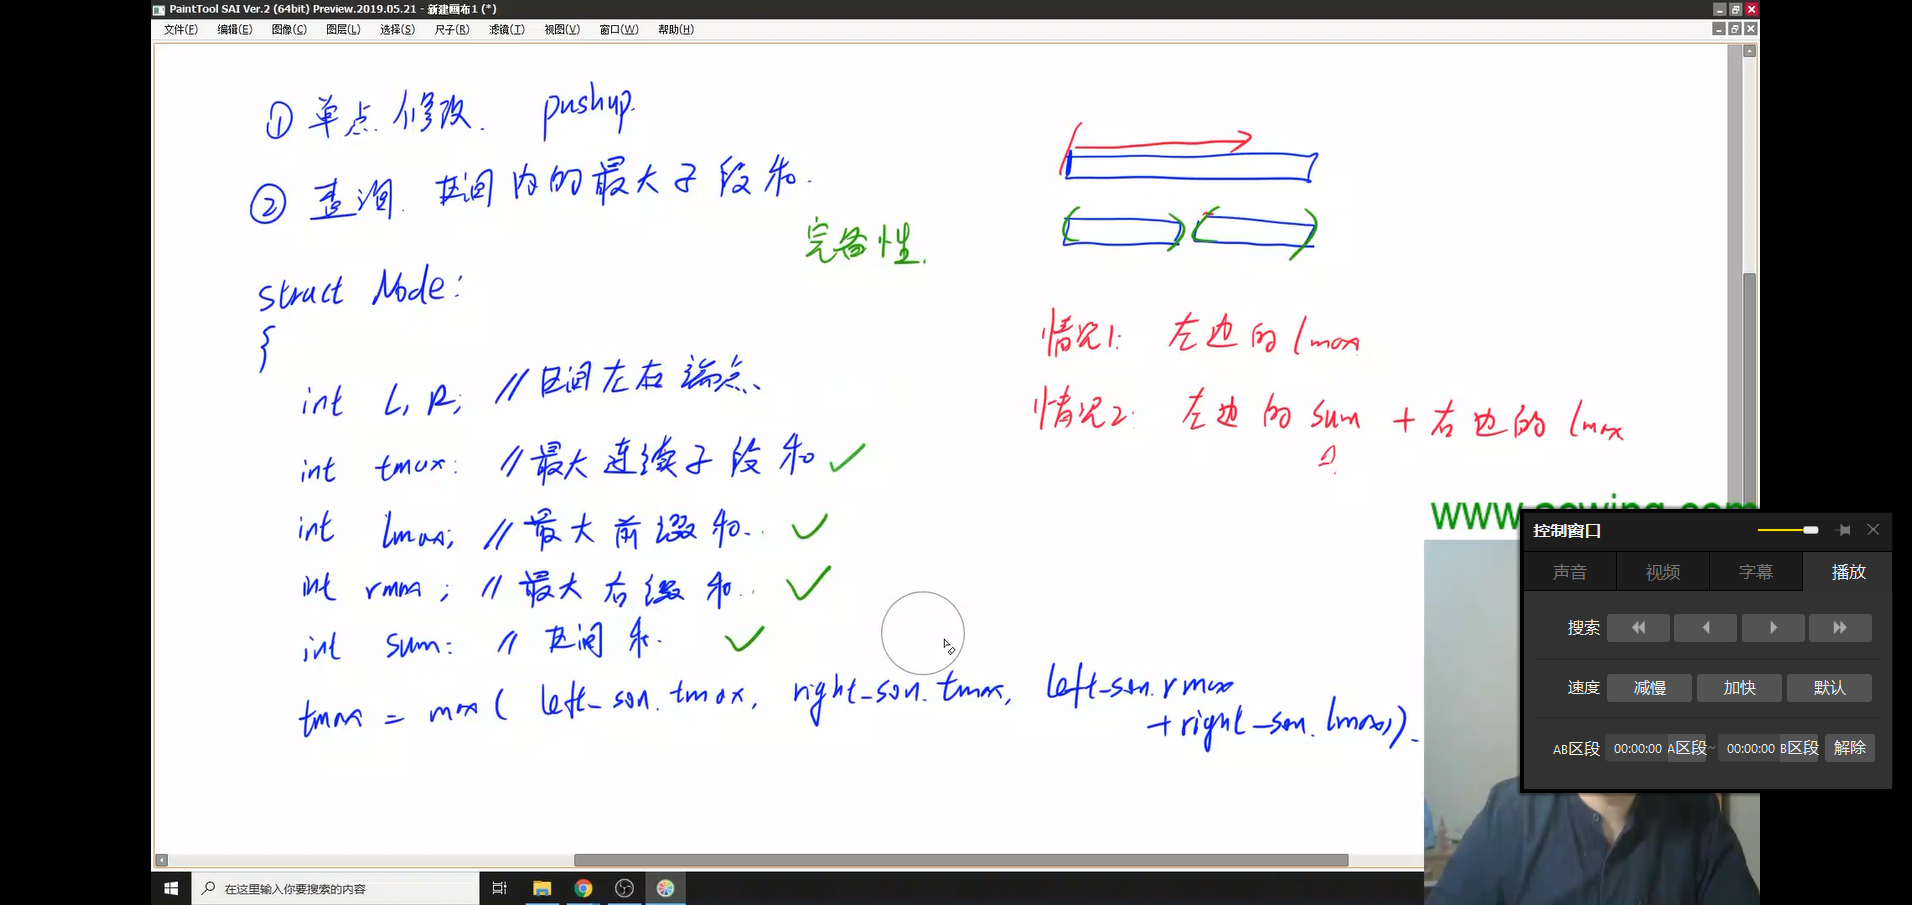 PaintTool SAI Ver.2 (64bit) Preview.2019.05.21 - 新建画布1 (*)
文件(F) 编辑(E) 图像(C) 图层(L) 选择(S) 尺子(R) 滤镜(T) 视图(V) 窗口(W) 帮助(H)
① 单点修改. pushup.
② 查询. 区间内的最大子段和.
完备性.
struct Node:
{
int L, R; // 区间左右端点、
int tmax: // 最大连续子段和 ✓
int lmax; // 最大前缀和. ✓
int rmax; // 最大后缀和. ✓
int sum: // 区间和. ✓
tmax = max( left_son.tmax, right_son.tmax, left_son.rmax
+right_son.lmax)).
情况1: 左边的lmax
情况2: 左边的sum + 右边的lmax
控制窗口
声音 视频 字幕 播放
搜索
速度 减慢 加快 默认
AB区段 00:00:00 A区段~ 00:00:00 B区段 解除
在这里输入你要搜索的内容